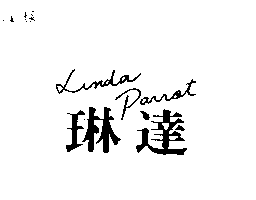 Linda
Parrot
琳達